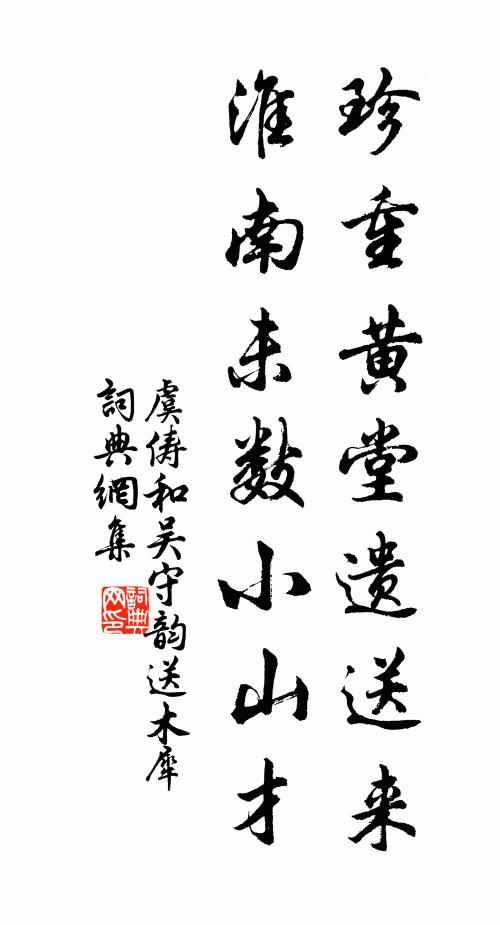 珍重黄堂遗送来
淮南未数小山才
虞俦和吴守韵送木犀
詞典網集
詞典
网印